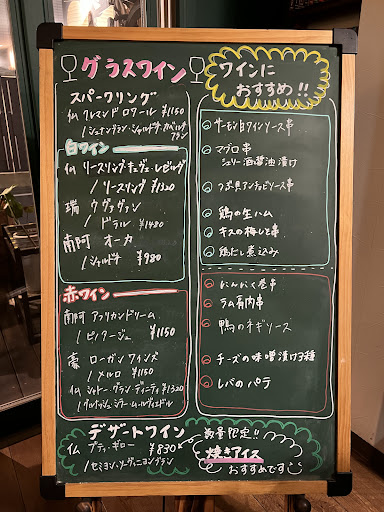 グラスワイン
スパークリング
仏 クレマン ド ロワール ¥1150
/シュナンブラン・シャルドネ・カベルネフラン
白ワイン
仏 リースリング キュヴェ・レゼルヴ
/リースリング ¥1320
瑞 ウヴァヴァン
/ドラル ¥1480
南阿 オーカ
/シャルドネ ¥980
赤ワイン
南阿 アフリカンドリーム
/ピノタージュ ¥1150
豪 ローガン ワインズ
/メルロ ¥1150
仏 シャトー・グラン・ ¥1320
/グルナッシュ・シラー・ムールヴェドル
デザートワイン
仏 プティ・ギロー ¥830
/セミヨン・ソーヴィニヨンブラン
ワインに
おすすめ!!
サーモン白ワインソース串
マグロ串
シェリー酒醤油漬け
つぶ貝アンチョビソース串
鶏の生ハム
キスの梅しそ串
鶏だし煮込み
にんにく巻串
ラム肩肉串
鴨のネギソース
チーズの味噌漬け3種
レバのパテ
数量限定!!
焼きアイス
おすすめです